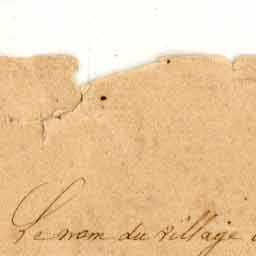 Le nom du village